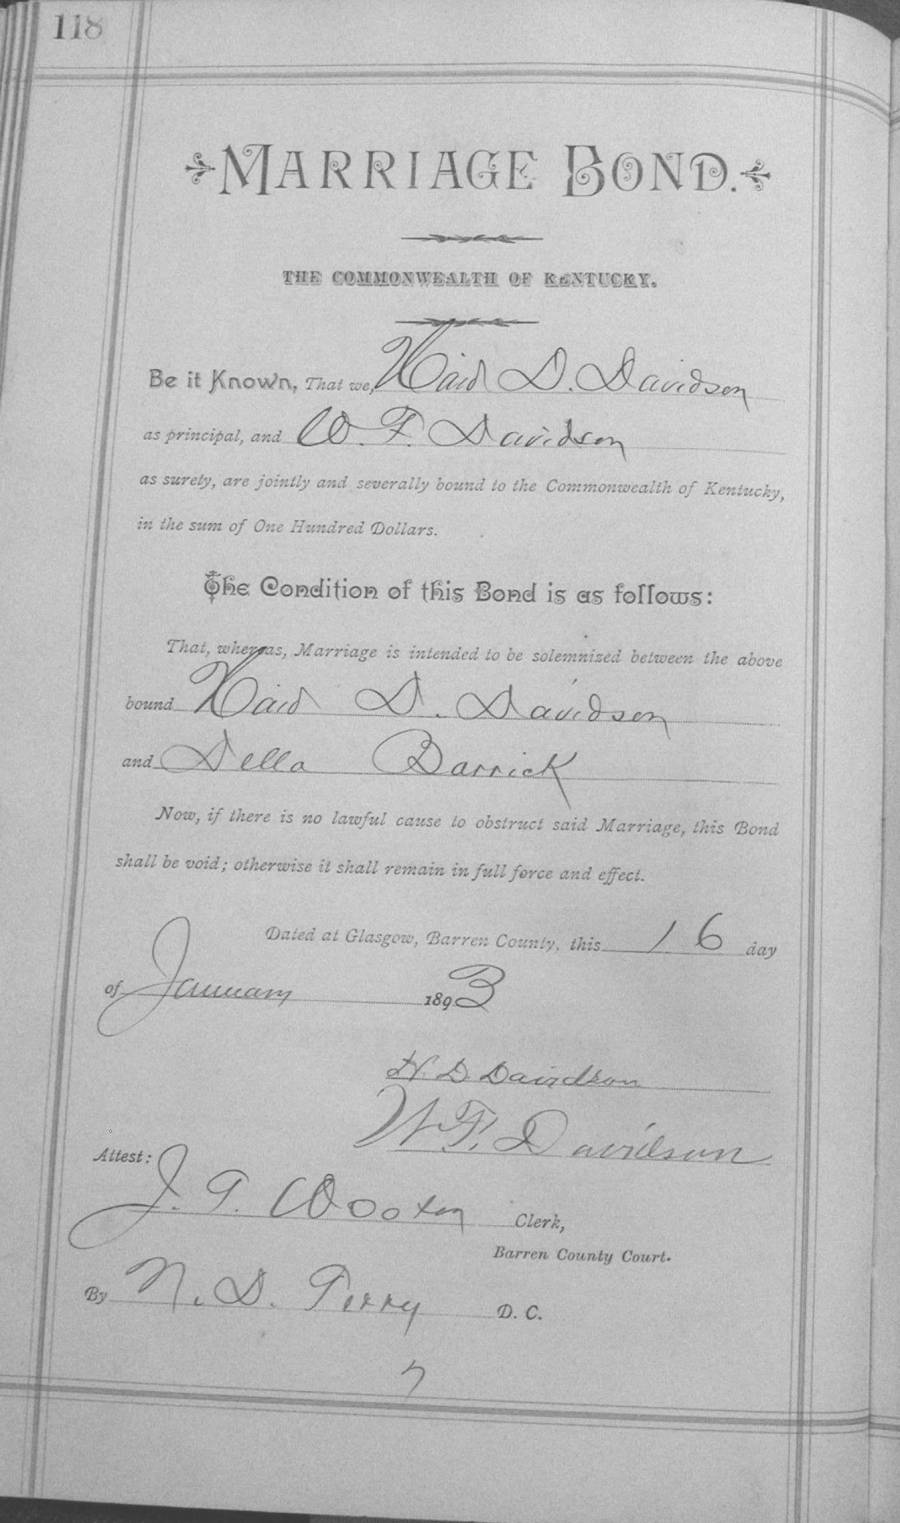 118
MARRIAGE BOND.
THE COMMONWEALTH OF KENTUCKY.
Be it Known, That we, Haid D. Davidson
as principal, and W. F. Davidson
as surety, are jointly and severally bound to the Commonwealth of Kentucky,
in the sum of One Hundred Dollars.
The Condition of this Bond is as follows:
That, whereas, Marriage is intended to be solemnized between the above
bound Haid D. Davidson
and Della Barrick
Now, if there is no lawful cause to obstruct said Marriage, this Bond
shall be void; otherwise it shall remain in full force and effect.
Dated at Glasgow, Barren County, this 16 day
of January 1893
H. D. Davidson
W. F. Davidson
Attest:
J. T. Wooten Clerk,
Barren County Court.
By N. D. Terry D. C.